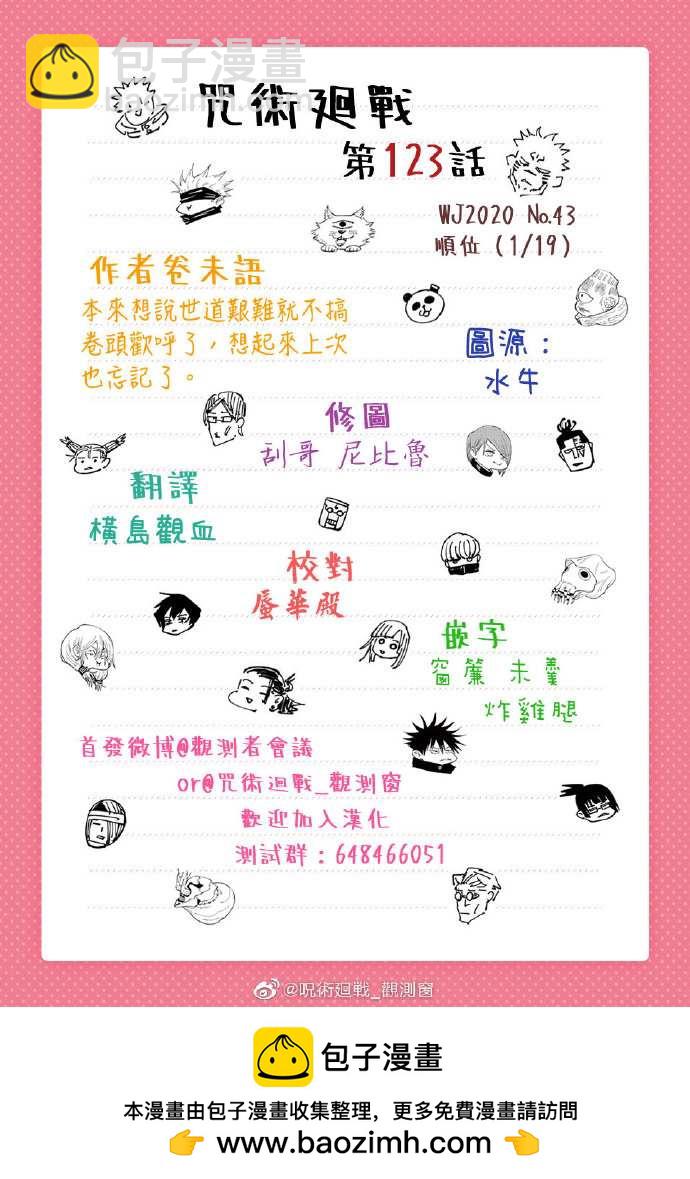 包子漫畫
baozimh.com
咒術廻戰
第123話
WJ2020 No.43
順位 (1/19)
作者卷末語
本來想說世道艱難就不搞
卷頭歡呼了，想起來上次
也忘記了。
圖源：
水牛
修圖
刮哥 尼比魯
翻譯
橫島觀血
校對
蜃華殿
嵌字
窗簾 未羹
炸雞腿
首發微博@觀測者會議
or@咒術迴戰_觀測窗
歡迎加入漢化
測試群：648466051
@呪術廻戦_觀測窗
包子漫畫
本漫畫由包子漫畫收集整理，更多免費漫畫請訪問
👉 www.baozimh.com 👈